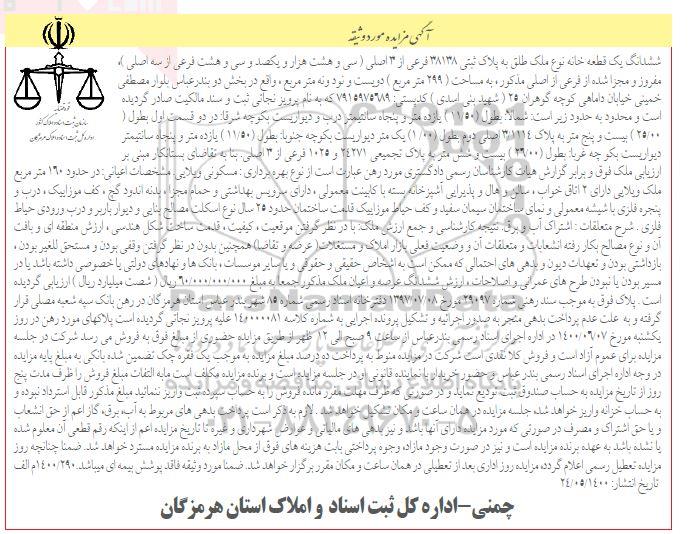 آگهی مزایده مورد وثیقه
قوه قضائیه
سازمان ثبت اسناد و املاک کشور
اداره کل ثبت اسناد و املاک هرمزگان
ششدانگ یک قطعه خانه نوع ملک طلق به پلاک ثبتی ۳۸۱۳۸ فرعی از ۳ اصلی ( سی و هشت هزار و یکصد و سی و هشت فرعی از سه اصلی )،
مفروز و مجزا شده از فرعی از اصلی مذکور ، به مساحت ( ۲۹۹ متر مربع ) دویست و نود ونه متر مربع ، واقع در بخش دو بندرعباس بلوار مصطفی
خمینی خیابان داماهی کوچه گوهران ۲۵ ( شهید بنی اسدی ) کدپستی: ۷۹۱۵۹۷۵۶۸۹ که به نام پرویز نجاتی ثبت و سند مالکیت صادر گردیده
است و محدود به حدود زیر است: شمالا: بطول (۱۱/۵۰) یازده متر و پنجاه سانتیمتر درب و دیواریست بکوچه شرقا: در دو قسمت اول بطول (
۲۵/۰۰) بیست و پنج متر به پلاک ۳/۱۱۱۴ اصلی دوم بطول (۱/۰۰) یک متر دیواریست بکوچه جنوبا: بطول (۱۱/۵۰) یازده متر و پنجاه سانتیمتر
دیواریست بکو چه غربا: بطول (۲۶/۰۰) بیست و شش متر به پلاک تجمیعی ۲۴۲۷۱ و ۱۰۲۵ فرعی از ۳ اصلی. بنا به تقاضای بستانکار مبنی بر
ارزیابی ملک فوق و برابر گزارش هیات کارشناسان رسمی دادگستری مورد رهن عبارت است از نوع بهره برداری : مسکونی ویلایی. مشخصات اعیانی: در حدود ۱۶۰ متر مربع
ملک ویلایی دارای ۲ اتاق خواب ، سالن و هال و پذیرایی آشپزخانه بسته با کابینت معمولی ، دارای سرویس بهداشتی و حمام مجزا ، بدنه اندود گچ ، کف موزاییک ، درب و
پنجره فلزی با شیشه معمولی و نمای ساختمان سیمان سفید و کف حیاط موزاییک قدمت ساختمان حدود ۲۵ سال نوع اسکلت مصالح بنایی و دیوار باربر و درب ورودی حیاط
فلزی . شرح متعلقات : اشتراک آب و برق. نتیجه کارشناسی و جمع ارزش ملک: با در نظر گرفتن موقعیت ، کیفیت ، قدمت ساخت شکل هندسی ، ارزش منطقه ای و بافت
آن و نوع مصالح بکار رفته انشعابات و متعلقات آن و وضعیت فعلی بازار املاک و مستغلات ( عرضه و تقاضا) همچنین بدون در نظر گرفتن وقفی بودن و مستحق للغیر بودن ،
بازداشتی بودن و تعهدات دیون و بدهی های احتمالی که ممکن است به اشخاص حقیقی و حقوقی و یا سایر موسسات ، بانک ها و نهادهای دولتی یا خصوصی داشته باشد یا در
مسیر بودن یا نبودن طرح های عمرانی و اصلاحات ، ارزش ششدانگ عرصه و اعیان ملک مذکور جمعا به مبلغ ۶۰/۰۰۰/۰۰۰/۰۰۰ ریال ( شصت میلیارد ریال ) ارزیابی گردیده
است . پلاک فوق به موجب سند رهنی شماره ۲۹۰۹۷ مورخ ۱۳۹۷/۰۷/۰۸ دفترخانه اسناد رسمی شماره ۸۵ شهر بندرعباس استان هرمزگان در رهن بانک سپه شعبه مصلی قرار
گرفته و به علت عدم پرداخت بدهی منجر به صدور اجرائیه و تشکیل پرونده اجرایی به شماره کلاسه ۱۴۰۰۰۰۰۸۱ علیه پرویز نجاتی گردیده است پلاکهای مورد رهن در روز
یکشنبه مورخ ۱۴۰۰/۰۶/۰۷ در اداره اجرای اسناد رسمی بندرعباس از ساعت ۹ صبح الی ۱۲ ظهر از طریق مزایده حضوری از مبلغ فوق به فروش می رسد شرکت در جلسه
مزایده برای عموم آزاد است و فروش کلا نقدی است شرکت در مزایده منوط به پرداخت ده درصد مبلغ مزایده به موجب یک فقره چک تضمین شده بانکی به مبلغ پایه مزایده
در وجه اداره اجرای اسناد رسمی بندر عباس و حضور خریدار یا نماینده قانونی او در جلسه مزایده است و برنده مزایده مکلف است مابه التفات مبلغ فروش را ظرف مدت پنج
روز از تاریخ مزایده به حساب صندوق ثبت تودیع نماید و در صورتی که ظرف مهلت مقرر مانده فروش را به حساب سپرده ثبت واریز ننمائید مبلغ مذکور قابل استرداد نبوده و
به حساب خزانه واریز خواهد شد، جلسه مزایده در همان ساعت و مکان تشکیل خواهد شد . لازم به ذکر است پرداخت بدهی های مربوط به آب، برق، گاز اعم از حق انشعاب
و یا حق اشتراک و مصرف در صورتی که مورد مزایده دارای آنها باشد و نیز بدهی های مالیاتی و عوارض شهرداری و غیره تا تاریخ مزایده اعم از اینکه رقم قطعی آن معلوم شده
یا نشده باشد به عهده برنده مزایده است و نیز در صورت وجود مازاد، وجوه پرداختی بابت هزینه های فوق از محل مازاد به برنده مزایده مسترد خواهد شد. ضمنا چنانچه روز
مزایده تعطیل رسمی اعلام گردد، مزایده روز اداری بعد از تعطیلی در همان ساعت و مکان مقرر برگزار خواهد شد. ضمنا مورد وثیقه فاقد پوشش بیمه ای میباشد. ۱۴۰۰/۲۹۰م الف
تاریخ انتشار: ۲۴/۰۵/۱۴۰۰
چمنی-اداره کل ثبت اسناد و املاک استان هرمزگان
پایگاه اطلاع رسانی مناقصه و مزایده